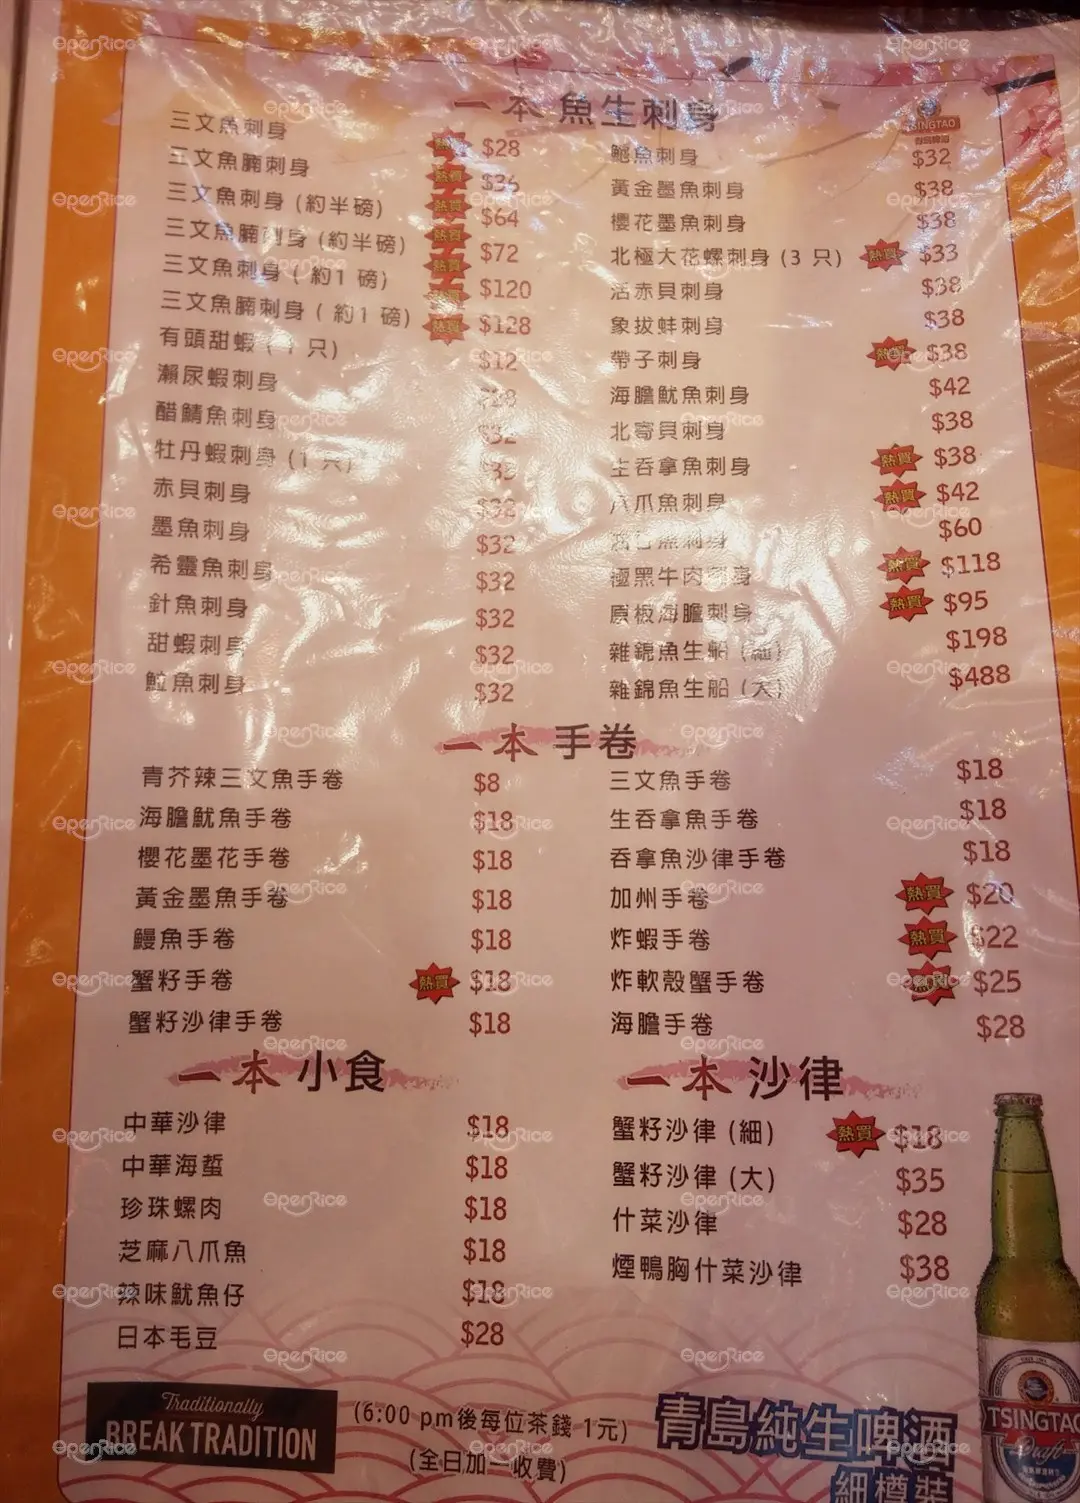 一本 魚生刺身
三文魚刺身 熱賣 $28
三文魚腩刺身 熱賣 $36
三文魚刺身 (約半磅) 熱賣 $64
三文魚腩刺身 (約半磅) 熱賣 $72
三文魚刺身 ( 約1 磅) 熱賣 $120
三文魚腩刺身 ( 約1 磅) 熱賣 $128
有頭甜蝦 ( 1 只) $12
瀨尿蝦刺身
醋鯖魚刺身 $32
牡丹蝦刺身 (1 只)
赤貝刺身 $32
墨魚刺身 $32
希靈魚刺身 $32
針魚刺身 $32
甜蝦刺身 $32
魚刺身 $32
TSINGTAO
青島啤酒
魚刺身 $32
黃金墨魚刺身 $38
櫻花墨魚刺身 $38
北極大花螺刺身 (3 只) 熱賣 $33
活赤貝刺身 $38
象拔蚌刺身 $38
帶子刺身 熱賣 $38
海膽魷魚刺身 $42
北寄貝刺身 $38
生吞拿魚刺身 熱賣 $38
八爪魚刺身 熱賣 $42
魚刺身 $60
極黑牛肉刺身 熱賣 $118
原板海膽刺身 熱賣 $95
雜錦魚生船 (細) $198
雜錦魚生船 (大) $488
一本 手卷
青芥辣三文魚手卷 $8
海膽魷魚手卷 $18
櫻花墨花手卷 $18
黃金墨魚手卷 $18
鰻魚手卷 $18
蟹籽手卷 熱賣 $18
蟹籽沙律手卷 $18
三文魚手卷 $18
生吞拿魚手卷 $18
吞拿魚沙律手卷 $18
加州手卷 熱賣 $20
炸蝦手卷 熱賣 $22
炸軟殼蟹手卷 熱賣 $25
海膽手卷 $28
一本 小食
中華沙律 $18
中華海蜇 $18
珍珠螺肉 $18
芝麻八爪魚 $18
辣味魷魚仔 $18
日本毛豆 $28
一本 沙律
蟹籽沙律 (細) 熱賣 $18
蟹籽沙律 (大) $35
什菜沙律 $28
煙鴨胸什菜沙律 $38
Traditionally
BREAK TRADITION
(6:00 pm後每位茶錢 1元)
(全日加一收費)
青島純生啤酒
細樽裝
TSINGTAO
Draft
OpenRice